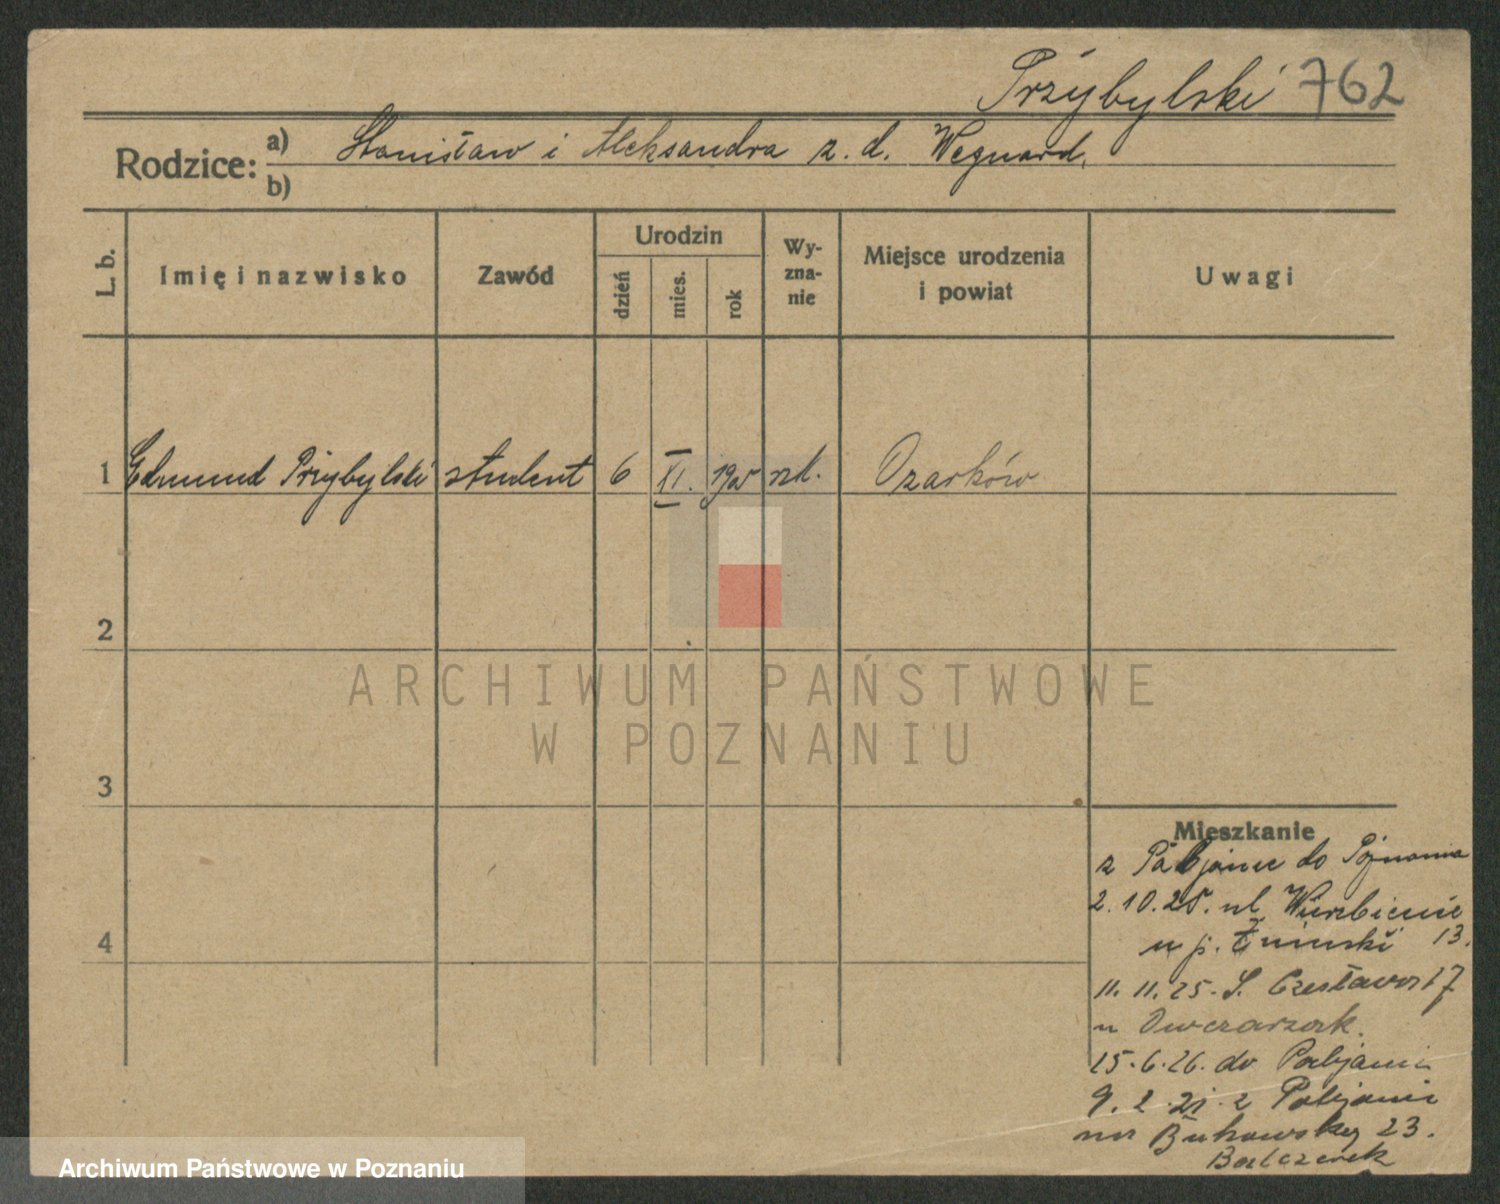 Przybylski 762
Rodzice: a) Stanisław i Aleksandra z. d. Wegnard.
b)
L. b.
Imię i nazwisko
Zawód
Urodzin
dzień
mies.
rok
Wy-
zna-
nie
Miejsce urodzenia
i powiat
Uwagi
1 Edmund Przybylski student 6 XI. 1905 rzk. Ozorków
2
ARCHIWUM PAŃSTWOWE
W POZNANIU
3
4
Mieszkanie
z Pabjanic do Poznania
2.10.25. ul Wierzbięcie
u p. Żninski 13.
11.11.25. S. Czesława 17
u Owczarzak.
15.6.26. do Pabjanic
z Pabjanic
na Bukowską 23.
Balcerek
Archiwum Państwowe w Poznaniu